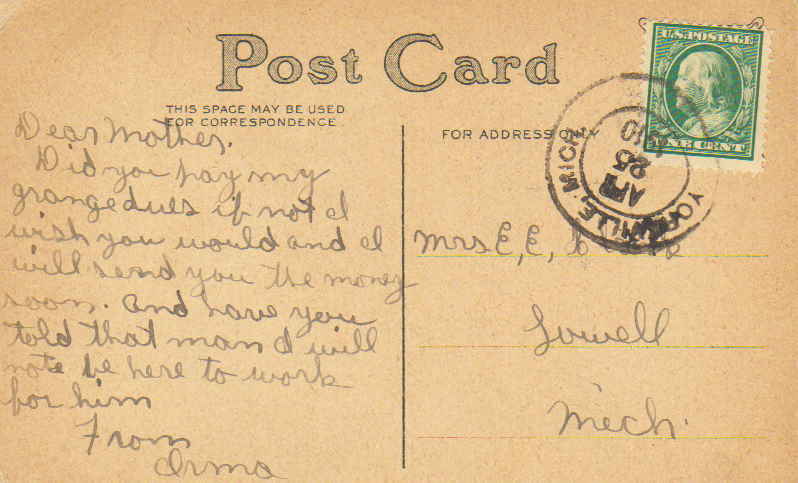 Post Card
THIS SPACE MAY BE USED
FOR CORRESPONDENCE.
FOR ADDRESS ONLY
U.S. POSTAGE
ONE CENT
MICH
APR
25
Dear Mother.
Did you pay my
grange dues if not I
wish you would and I
will send you the money
soon. and have you
told that man I will
note be here to work
for him
From
Irma
Mrs E, E,
Lowell
Mech.